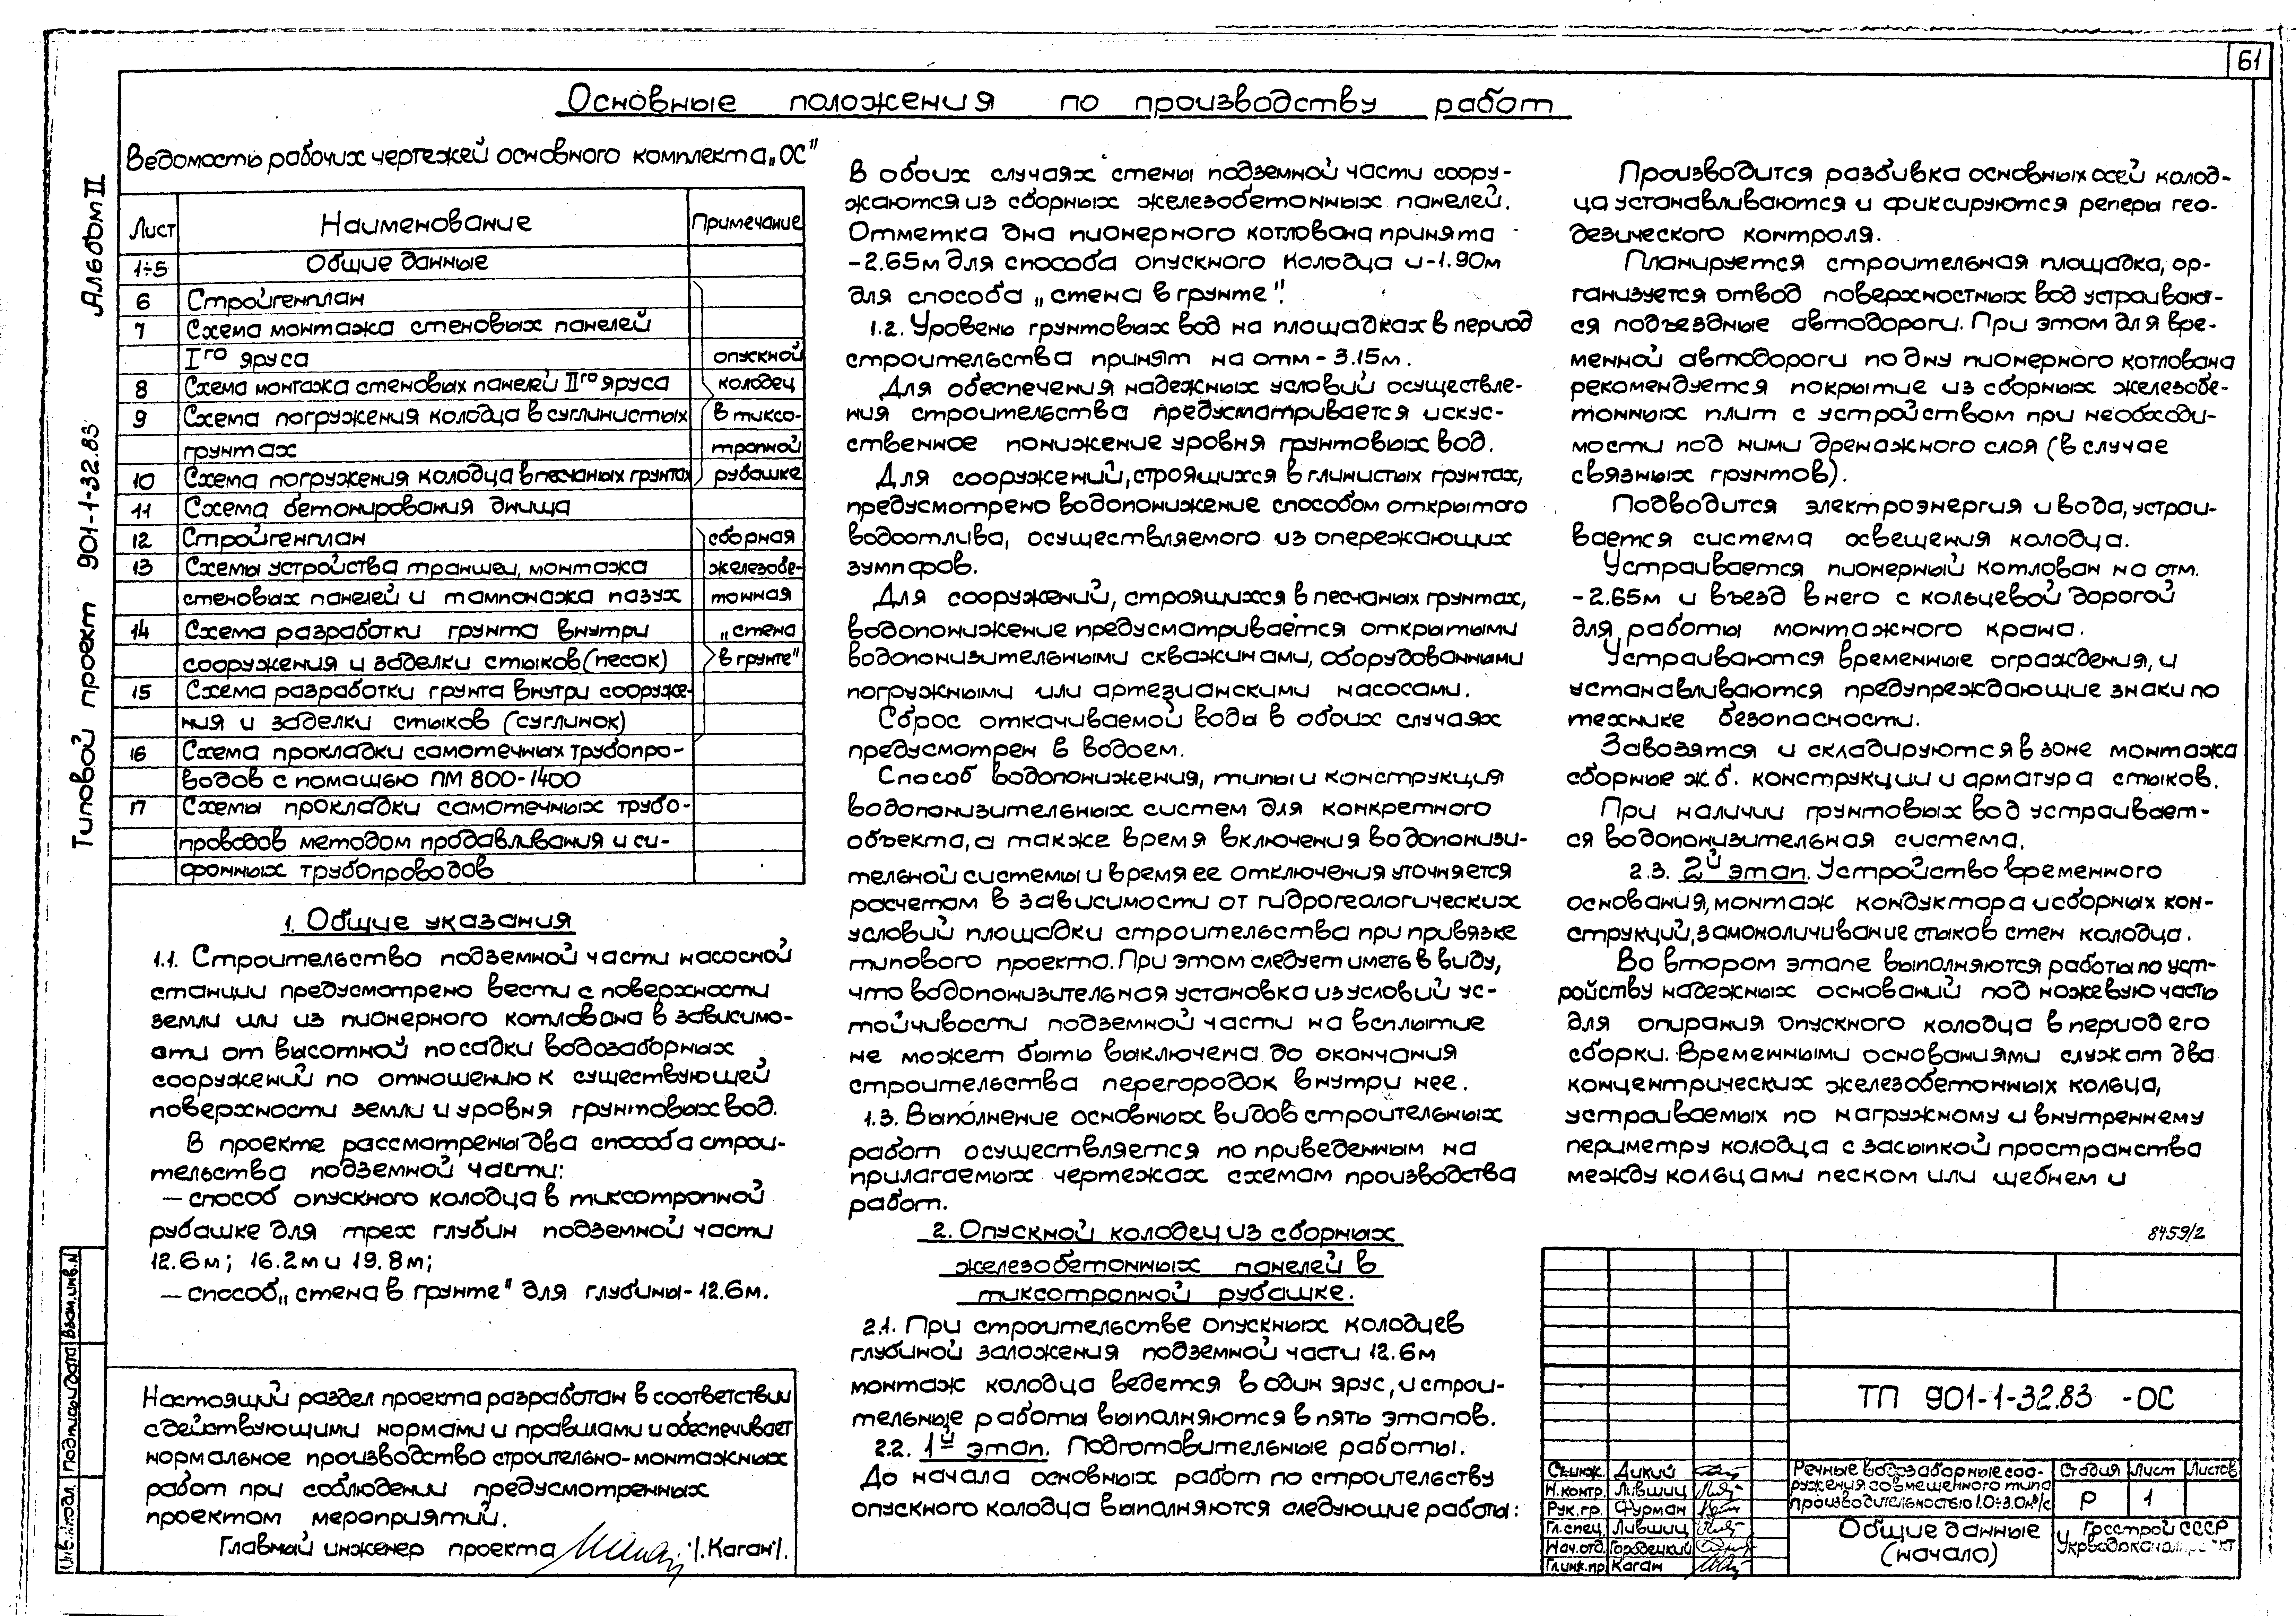 61
Основные положения по производству работ
Альбом II
Типовой проект 901-1-32.83
Ведомость рабочих чертежей основного комплекта „ОС"
Лист Наименование Примечание
1÷5 Общие данные
6 Стройгенплан
7 Схема монтажа стеновых панелей
Iго яруса опускной
8 Схема монтажа стеновых панелей IIго яруса колодец
9 Схема погружения колодца в суглинистых в тиксо-
грунтах тропной
10 Схема погружения колодца в песчаных грунтах рубашке
11 Схема бетонирования днища
12 Стройгенплан сборная
13 Схемы устройства траншеи, монтажа железобе-
стеновых панелей и тампонажа пазух тонная
14 Схема разработки грунта внутри „стена
сооружения и заделки стыков (песок) в грунте"
15 Схема разработки грунта внутри сооруже-
ния и заделки стыков (суглинок)
16 Схема прокладки самотечных трубопро-
водов с помощью ПМ 800-1400
17 Схемы прокладки самотечных трубо-
проводов методом продавливания и си-
фонных трубопроводов
1. Общие указания
1.1. Строительство подземной части насосной
станции предусмотрено вести с поверхности
земли или из пионерного котлована в зависимо-
сти от высотной посадки водозаборных
сооружений по отношению к существующей
поверхности земли и уровня грунтовых вод.
В проекте рассмотрены два способа строи-
тельства подземной части:
— способ опускного колодца в тиксотропной
рубашке для трех глубин подземной части
12.6м; 16.2м и 19.8м;
— способ „стена в грунте" для глубины - 12.6м.
Настоящий раздел проекта разработан в соответствии
с действующими нормами и правилами и обеспечивает
нормальное производство строительно-монтажных
работ при соблюдении предусмотренных
проектом мероприятий.
Главный инженер проекта /.Каган/.
В обоих случаях стены подземной части соору-
жаются из сборных железобетонных панелей.
Отметка дна пионерного котлована принята
-2.65м для способа опускного колодца и -1.90м
для способа „стена в грунте".
1.2. Уровень грунтовых вод на площадках в период
строительства принят на отм - 3.15м.
Для обеспечения надежных условий осуществле-
ния строительства предусматривается искус-
ственное понижение уровня грунтовых вод.
Для сооружений, строящихся в глинистых грунтах,
предусмотрено водопонижение способом открытого
водоотлива, осуществляемого из опережающих
зумпфов.
Для сооружений, строящихся в песчаных грунтах,
водопонижение предусматривается открытыми
водопонизительными скважинами, оборудованными
погружными или артезианскими насосами.
Сброс откачиваемой воды в обоих случаях
предусмотрен в водоем.
Способ водопонижения, типы и конструкция
водопонизительных систем для конкретного
объекта, а также время включения водопонизи-
тельной системы и время ее отключения уточняется
расчетом в зависимости от гидрогеологических
условий площадки строительства при привязке
типового проекта. При этом следует иметь в виду,
что водопонизительная установка из условий ус-
тойчивости подземной части на всплытие
не может быть выключена до окончания
строительства перегородок внутри нее.
1.3. Выполнение основных видов строительных
работ осуществляется по приведенным на
прилагаемых чертежах схемам производства
работ.
2. Опускной колодец из сборных
железобетонных панелей в
тиксотропной рубашке.
2.1. При строительстве опускных колодцев
глубиной заложения подземной части 12.6м
монтаж колодца ведется в один ярус, и строи-
тельные работы выполняются в пять этапов.
2.2. 1й этап. Подготовительные работы.
До начала основных работ по строительству
опускного колодца выполняются следующие работы:
Производится разбивка основных осей колод-
ца устанавливаются и фиксируются реперы гео-
дезического контроля.
Планируется строительная площадка, ор-
ганизуется отвод поверхностных вод устраивают-
ся подъездные автодороги. При этом для вре-
менной автодороги по дну пионерного котлована
рекомендуется покрытие из сборных железобе-
тонных плит с устройством при необходи-
мости под ними дренажного слоя (в случае
связных грунтов).
Подводится электроэнергия и вода, устраи-
вается система освещения колодца.
Устраивается пионерный котлован на отм.
-2.65м и въезд в него с кольцевой дорогой
для работы монтажного крана.
Устраиваются временные ограждения, и
устанавливаются предупреждающие знаки по
технике безопасности.
Завозятся и складируются в зоне монтажа
сборные ж.б. конструкции и арматура стыков.
При наличии грунтовых вод устраивает-
ся водопонизительная система.
2.3. 2й этап. Устройство временного
основания, монтаж кондуктора и сборных кон-
струкций, замоноличивание стыков стен колодца.
Во втором этапе выполняются работы по уст-
ройству надежных оснований под ножевую часть
для опирания опускного колодца в период его
сборки. Временными основаниями служат два
концентрических железобетонных кольца,
устраиваемых по нагружному и внутреннему
периметру колодца с засыпкой пространства
между кольцами песком или щебнем и
8459/2
ТП 901-1-32.83 -ОС
Ст.инж. Дикий
Н.контр. Лившиц
Рук.гр. Фурман
Гл.спец. Лившиц
Нач.отд. Городецкий
Гл.инж.пр. Каган
Речные водозаборные соо-
ружения совмещенного типа
производительностью 1.0÷3.0м³/с
Стадия Лист Листов
Р 1
Общие данные
(начало)
Госстрой СССР
Укрводоканалпроект
Инв.№подл. Подпись и дата Взам.инв.№